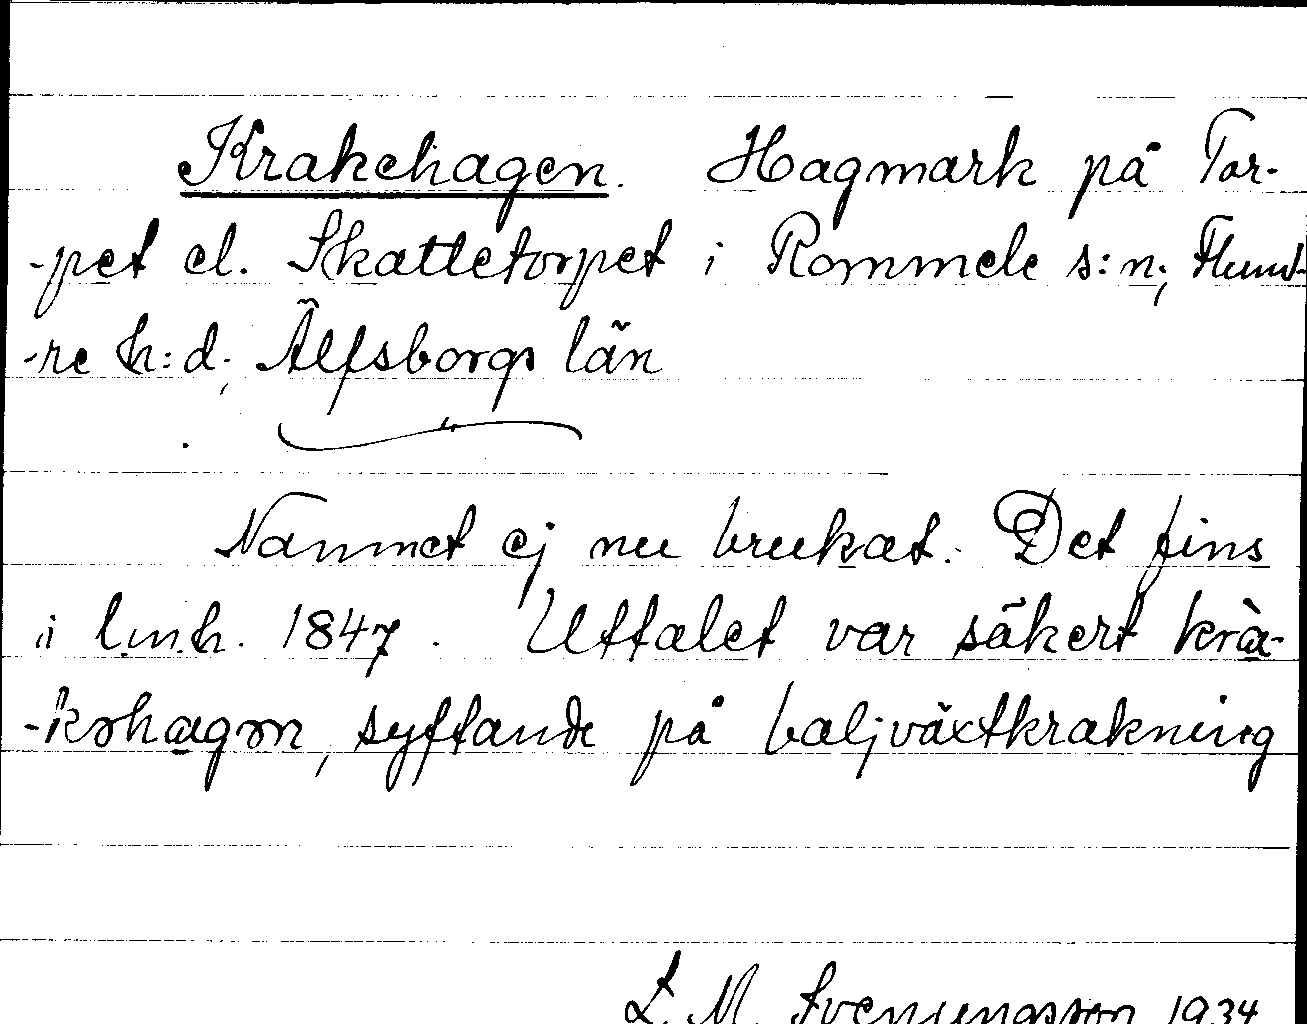 Krakehagen. Hagmark på Tor-
-pet el. Skattetorpet i Rommele s:n; Flund-
-re h:d; Älfsborgs län
Namnet ej nu brukat. Det fins
i l.m.h. 1847. Uttalet var säkert krà-
-kshagen, syftande på baljväxtkrakning
L. M. Svenungsson 1934